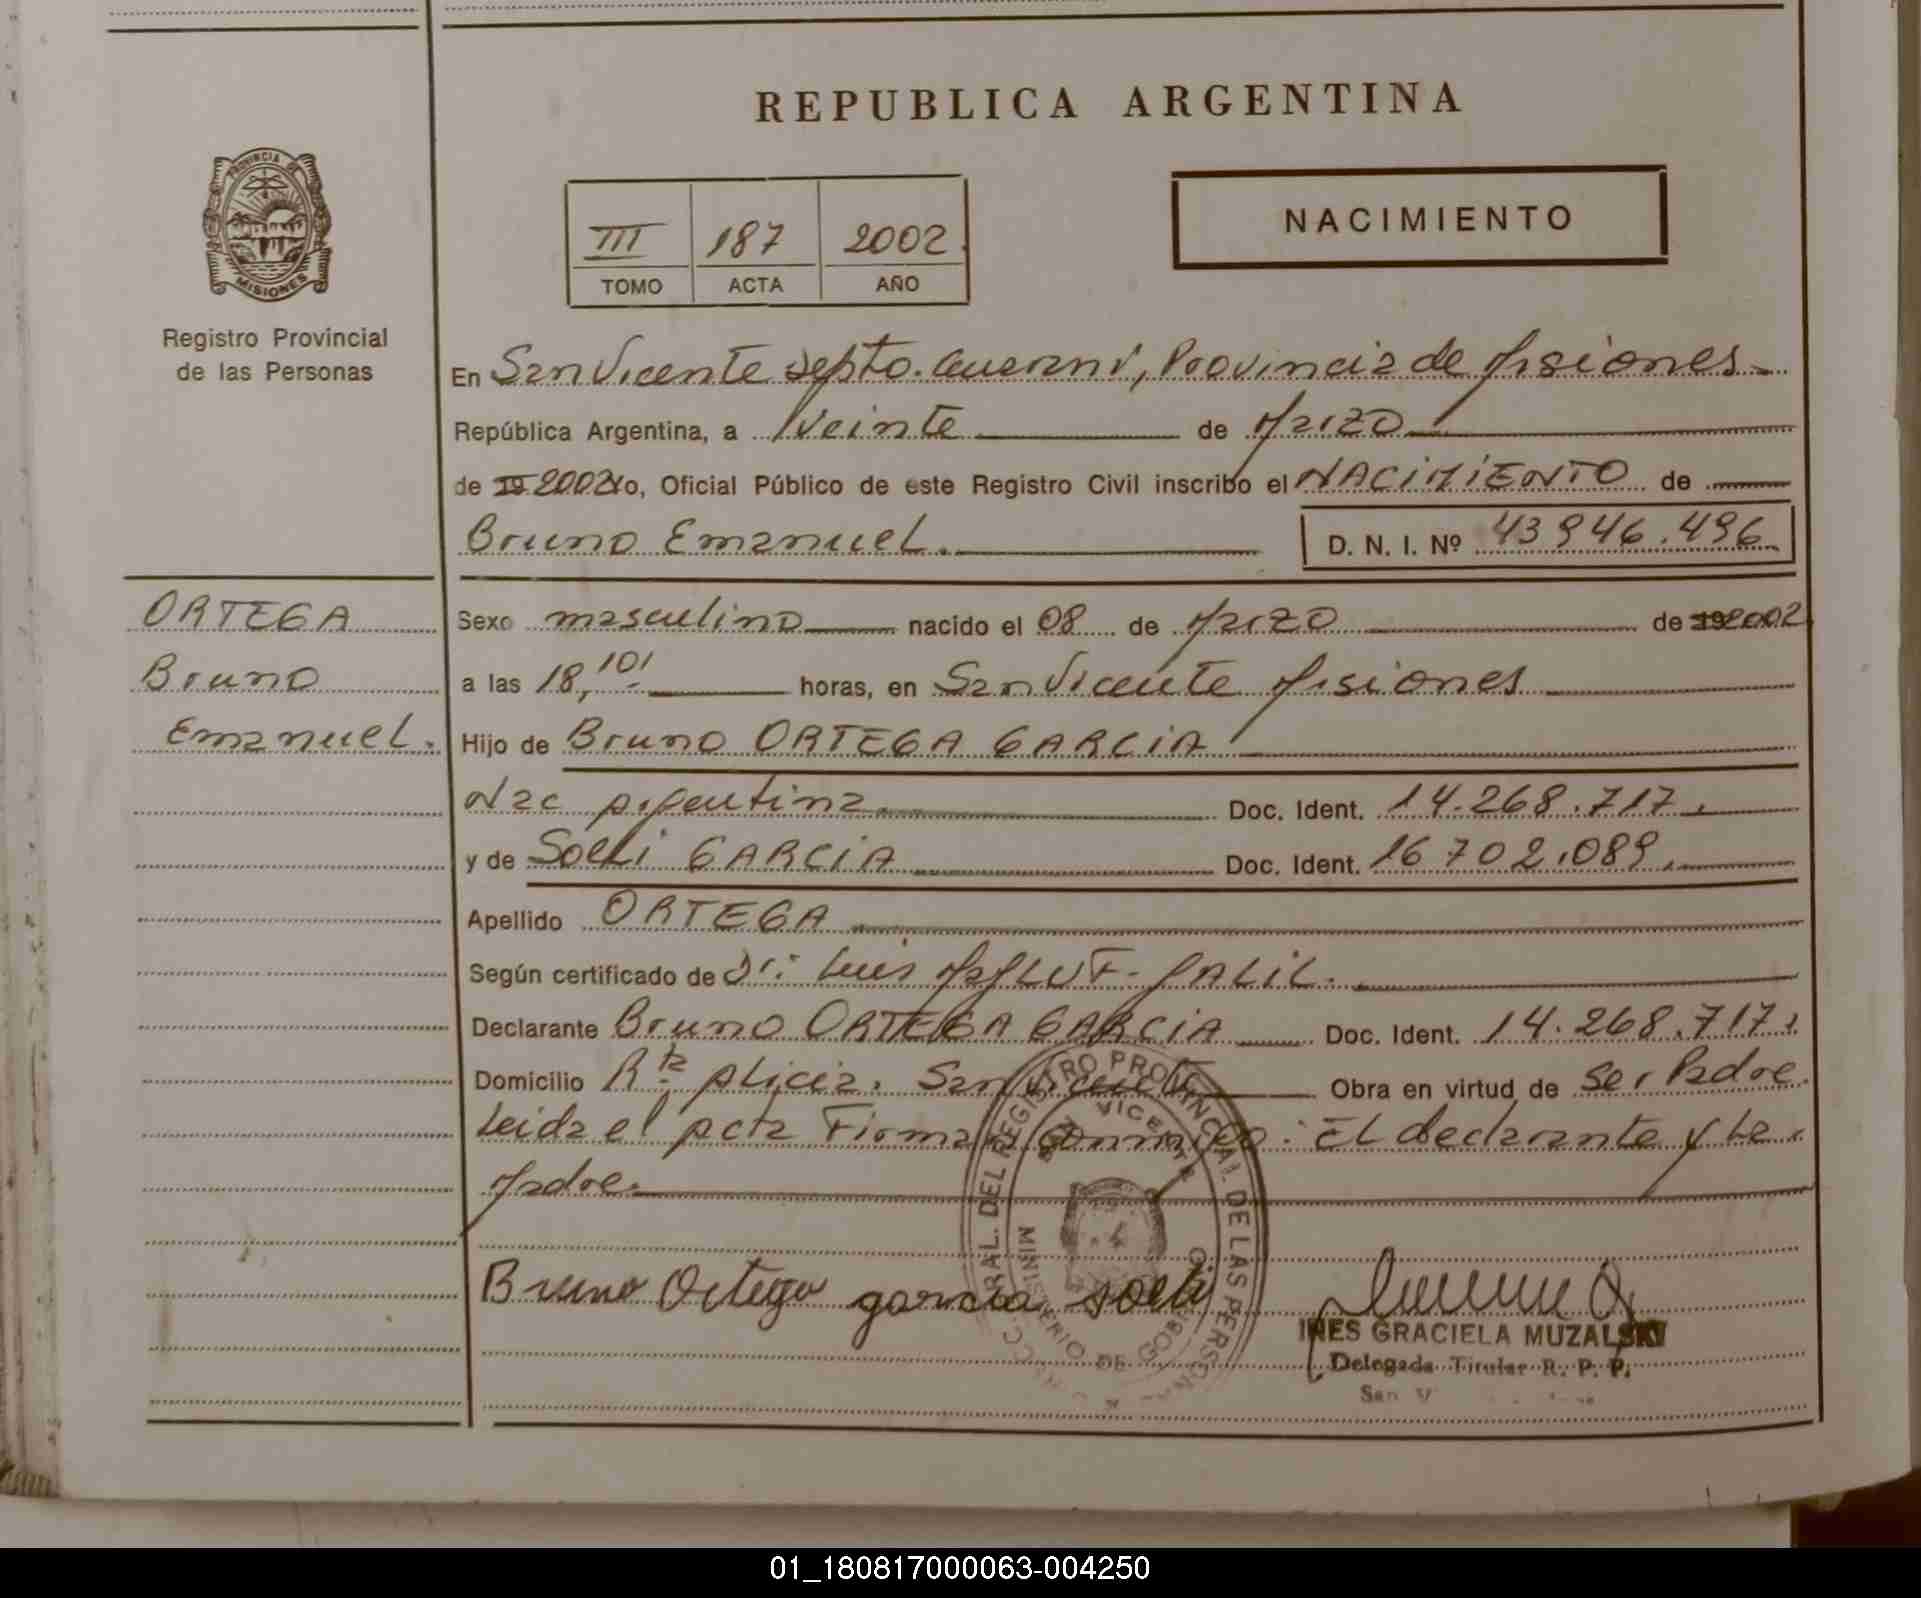 REPUBLICA ARGENTINA
PROVINCIA DE MISIONES
Registro Provincial
de las Personas
III 187 2002
TOMO ACTA AÑO
NACIMIENTO
En San Vicente Depto. Guaraní, Provincia de Misiones
República Argentina, a Veinte de Marzo
de 19 2002 Yo, Oficial Público de este Registro Civil inscribo el NACIMIENTO de
Bruno Emanuel. D. N. I. Nº 43 946.496
ORTEGA
Bruno
Emanuel.
Sexo masculino nacido el 08 de Marzo de 19 2002
a las 18,10' horas, en San Vicente Misiones
Hijo de Bruno ORTEGA GARCIA
Nac Argentina Doc. Ident. 14.268.717.
y de Soeli GARCIA Doc. Ident. 16 702.089.
Apellido ORTEGA
Según certificado de Dr: Luis GALIL.
Declarante Bruno ORTEGA GARCIA Doc. Ident. 14.268.717.
Domicilio Rta Alicia. San Vicente Obra en virtud de ser Padre.
Leida el Acta Firman Conmigo: El declarante y La
Madre.
Bruno Ortega garcia soeli
REGISTRO PROVINCIAL DE LAS PERSONAS
VICENTE
MINISTERIO DE GOBIERNO
INES GRACIELA MUZALSKI
Delegada Titular R. P. P.
San V
01_180817000063-004250